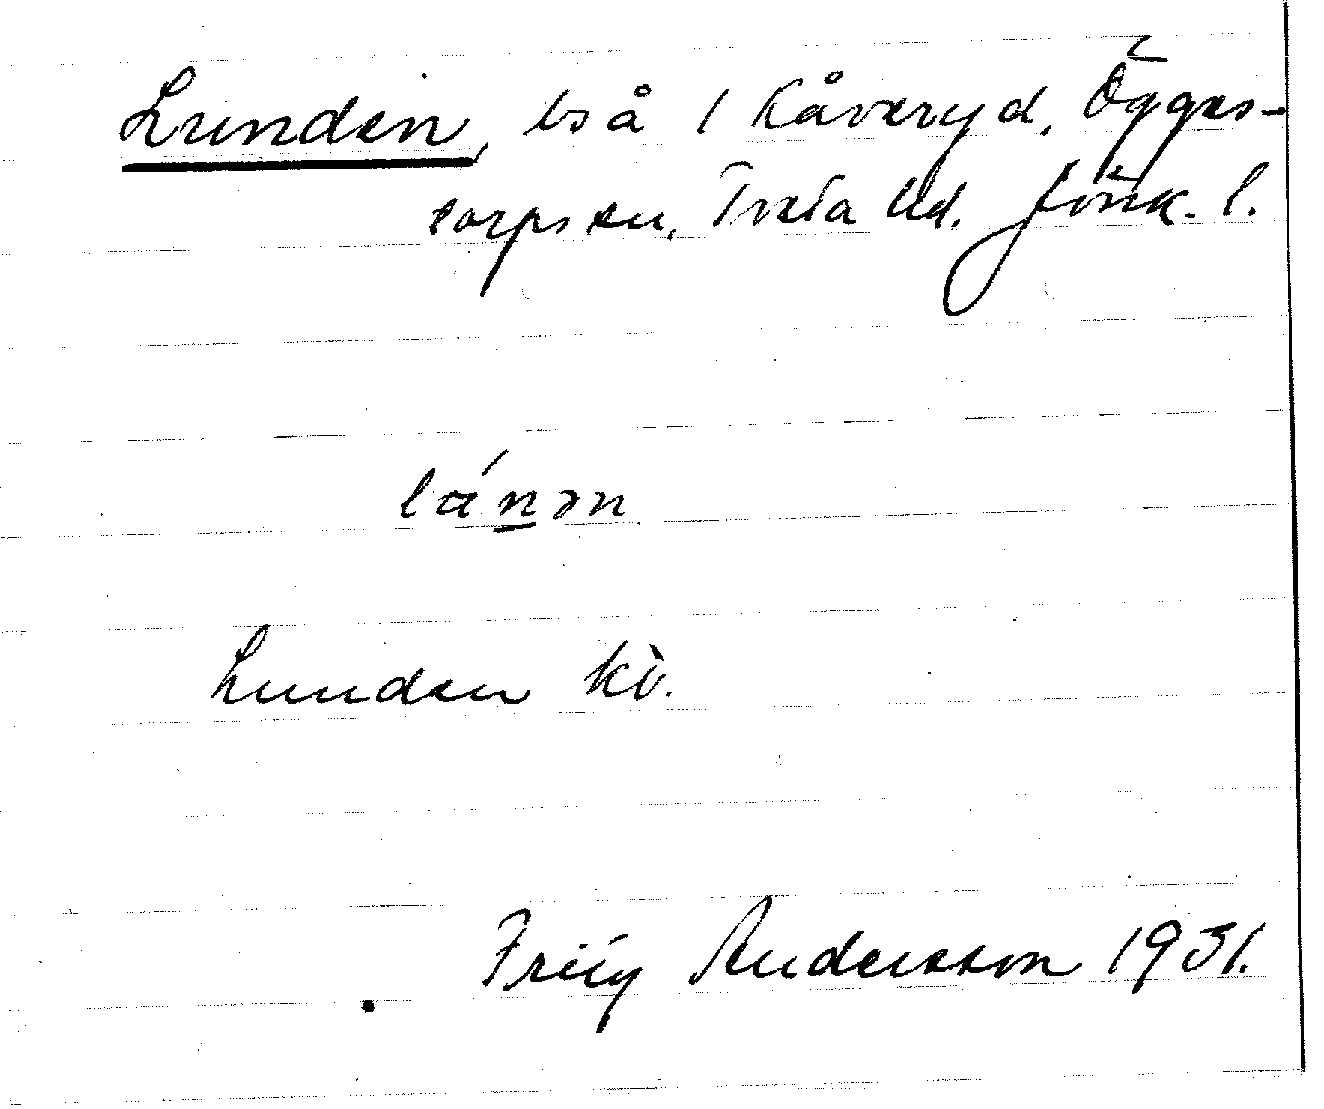 Lunden, bså / Kåveryd, Öggesstorps sn, Tveta hd. Jönk. l.
lánən
Lunden kò.
Frity Andersson 1931.